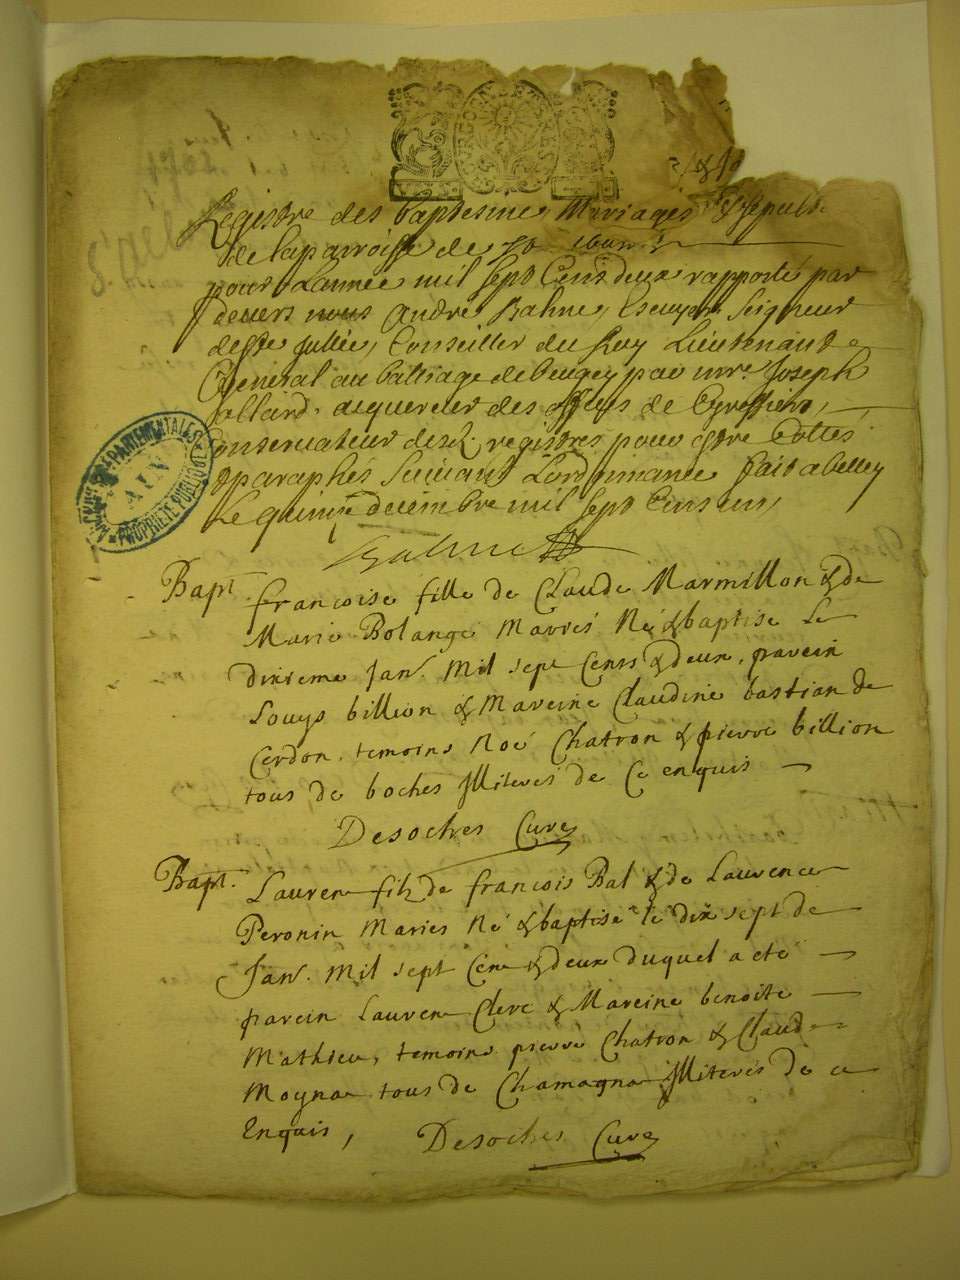 BURGOGNE
Registre des baptesme, Mariages Et sepult
de la parroisse de St
pour L'année mil sept Cens deux rapporté par
devers nous André Bahne, Escuyer Seigneur
de Ste Jullie, Conseiller du Roy Lieutenant
General au balliage de beugey par mre. Joseph
acquereur des offices de Greffiers,
Conservateur desd. registres pour estre Cottés
& paraphés Suivant Lordonnance fait a belley
Le quinze decembre mil sept Cens un,
Bahne
ARCHIVES DÉPARTEMENTALES
AIN
PROPRIÉTÉ PUBLIQUE
Bapt.
francoise fille de Claude Marmillon & de
Marie Bolange Mariés Né & baptise Le
dixieme Janr. Mil sept Cens & deux, parein
Louys billion & Mareine Claudine bastian de
Cerdon, temoins Noé Chatron & pierre billion
tous de boches Illiterés de Ce enquis
Desoches Curé
Bapt.
Lauren filz de francois Bal & de Laurence
Peronin Maries Né & baptise le dix sept de
Janr. Mil sept Cens & deux duquel a eté
parein Lauren Clerc & Mareine benoite
Mathieu, temoins pierre Chatron & Claude
Moyna tous de Chamagna Illiterés de ce
Enquis, Desoches Curé